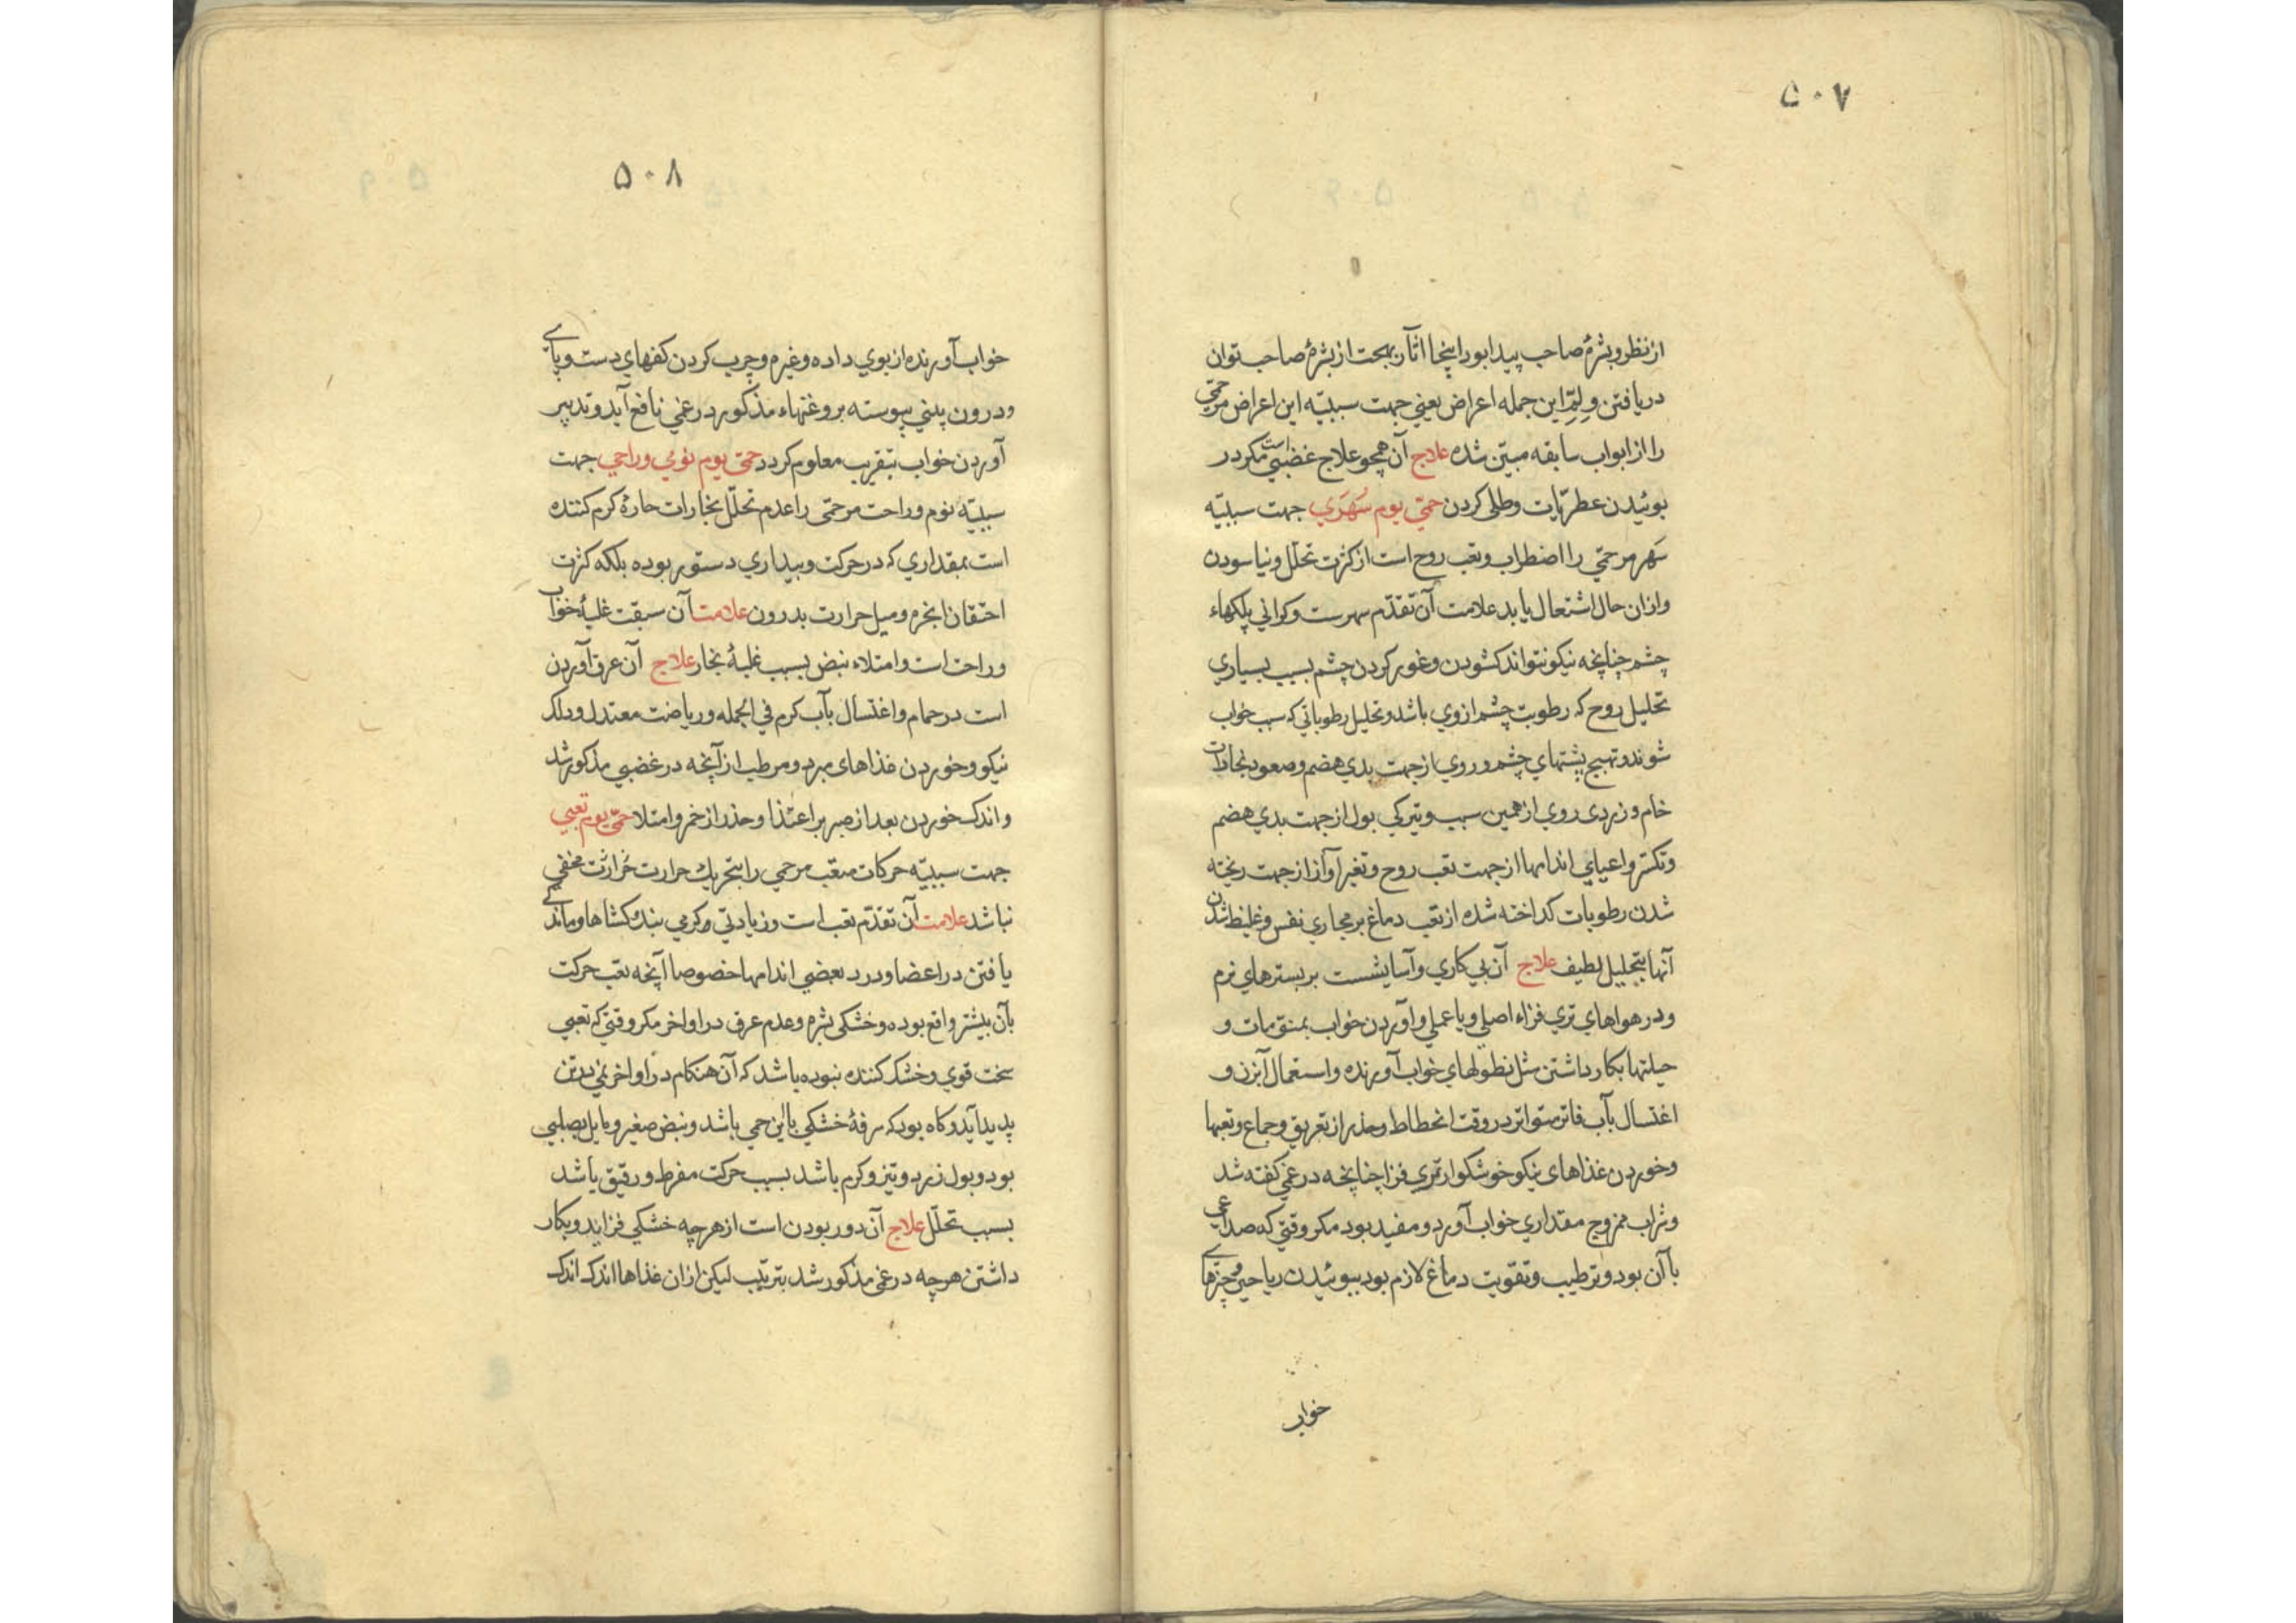 ۵۰۷
از نظر و بشرهٔ صاحب پیدا بود اینجا آثار بهجت از بشرهٔ صاحب توان
دریافتن و لِمّ این جمله اعراض یعنی جهت سببیّه این اعراض مر حمّی
را از ابواب سابقه مبیّن شده علاج آن همچو علاج غضبی است مکر در
بوئیدن عطریّات و طلی کردن حمّی یوم سَهَری جهت سببیّه
سَهر مر حمّی را اضطراب و تعب روح است از کثرت تحلّل و نیاسودن
و ازان حال اشتعال یابد علامت آن تقدّم سهرست و کرانی پلکهاء
چشم چنانچه نیکو نتواند کشودن و غور کردن چشم بسبب بسیاری
تحلیل روح که رطوبت چشم از وی باشد و تحلیل رطوباتی که سبب خواب
شوند و تهیج پشتهای چشم و روی از جهت بدی هضم و صعود بخارات
خام و زردی روی از همین سبب و تیرکی بول از جهت بدی هضم
و تکسّر و اعیای اندامها از جهت تعب روح و تغیر آواز از جهت ریخته
شدن رطوبات کداخته شده از تعب دماغ بر مجاری نفس و غلیظ شدن
آنها بتحلیل لطیف علاج آن بی کاری و آسایشست بر بسترهای نرم
و در هواهای تری فزاء اصلی و یا عملی و آوردن خواب بمنوّمات و
حیلتها بکار داشتن مثل نطولهای خواب آورنده و استعمال آبزن و
اغتسال بآب فاتر متواتر در وقت انحطاط و حذر از تعریق و جماع و تعبها
و خوردن غذاهای نیکو خوشکوار تری فزا چنانچه در غمّی کفته شد
و شراب ممزوج مقداری خواب آورد و مفید بود مکر وقتی که صداعی
با آن بود و ترطیب و تقویت دماغ لازم بود ببوئیدن ریاحین و چیزهای
خواب
۵۰۸
خواب آورنده از بوی داده و غیره و چرب کردن کفهای دست و پای
و درون بینی پیوسته بروغنهاء مذکور در غمّی نافع آید و تدبیر
آوردن خواب بتقریب معلوم کردد حمّی یوم نومی و راحی جهت
سببیّه نوم و راحت مر حمّی را عدم تحلّل بخارات حارهٔ کرم کننده
است بمقداری که در حرکت و بیداری دستور بوده بلکه کثرت
احتقان ابخره و میل حرارت بدرون علامت آن سبقت غلبهٔ خواب
و راحت است و امتلاء نبض بسبب غلبهٔ بخار علاج آن عرق آوردن
است در حمام و اغتسال بآب کرم فی الجمله و ریاضت معتدل و دلک
نیکو و خوردن غذاهای مبرد و مرطب از آنچه در غضبی مذکور شد
و اندک خوردن بعد از صبر بر اغتذا و حذر از خمر و امتلا حمّی یوم تعبی
جهت سببیّه حرکات متعب مر حمی را بتحریک حرارت حرارتْ مخفی
نباشد علامت آن تقدّم تعب است و زیادتی و کرمی بندکشاها و ماندکی
یافتن در اعضا و درد بعضی اندامها خصوصا آنچه تعب حرکت
بآن بیشتر واقع بوده و خشکی بشره و عدم عرق در اواخر مکر وقتی که تعبی
سخت قوی و خشک کننده نبوده باشد که آن هنکام در اواخر نمی بدین
پدید آید و کاه بود که سرفهٔ خشکی با این حمی باشد و نبض صغیر و مایل بصلبی
بود و بول زرد و تیز و کرم باشد بسبب حرکت مفرط و رقیق باشد
بسبب تحلّل علاج آن دور بودن است از هرچه خشکی فزاید و بکار
داشتن هرچه در غمی مذکور شد بترتیب لیکن ازان غذاها اندک اندک